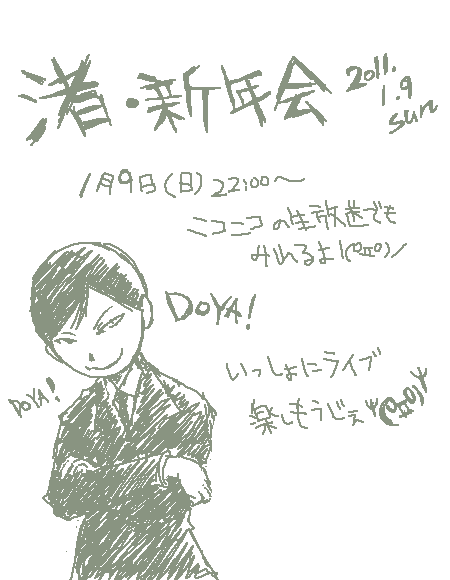 渚・新年会
2011.
1.9
sun
1月9日(日) 22:00〜
ニコニコの生放送でも
みれるよ!(ºДº)ノ
DOYA!
いっしょにライブ
DOYA!
楽しもうじぇ Ψ(ºДº)Ψ